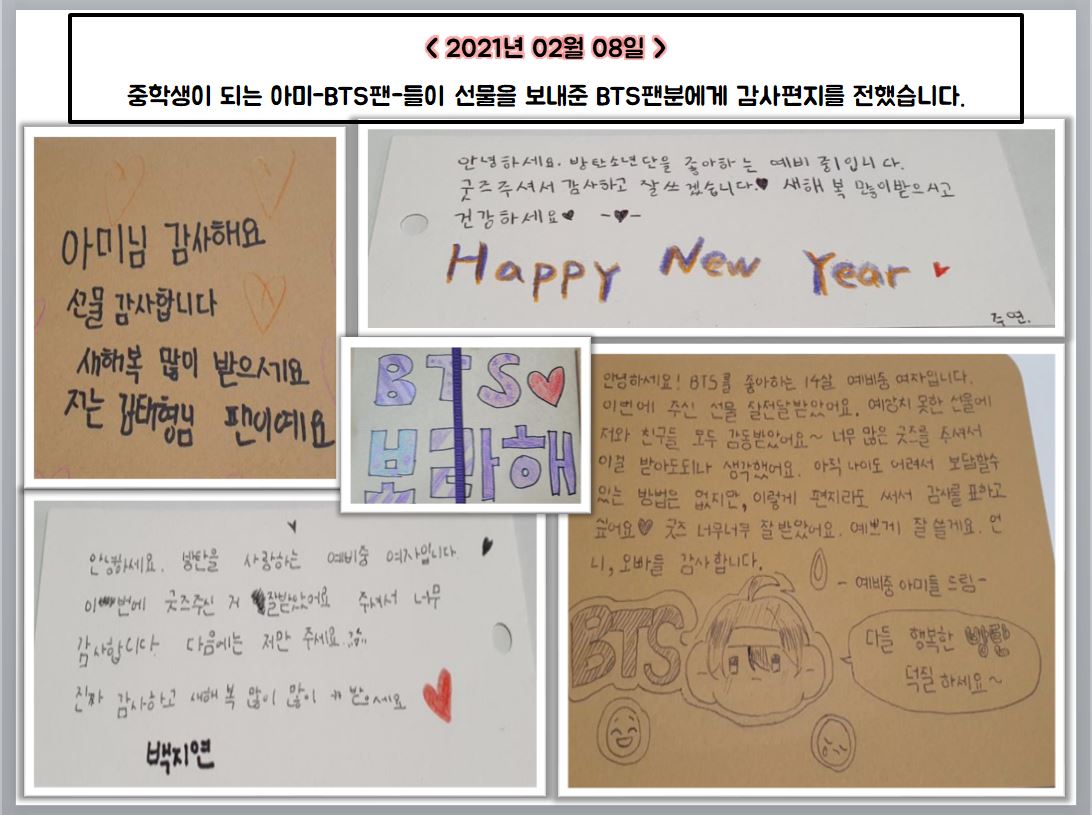 < 2021년 02월 08일 >
중학생이 되는 아미-BTS팬-들이 선물을 보내준 BTS팬분에게 감사편지를 전했습니다.
아미님 감사해요
선물 감사합니다
새해복 많이 받으세요
저는 김태형님 팬이예요
안녕하세요. 방탄소년단을 좋아하는 예비 중1입니다.
굿즈주셔서 감사하고 잘쓰겠습니다.♥ 새해 복 많이받으시고
건강하세요♥ -♥-
Happy New Year ♥
주연.
BTS♥
보라해
안녕하세요! BTS를 좋아하는 14살 예비중 여자입니다.
이번에 주신 선물 잘전달받았어요. 예상치 못한 선물에
저와 친구들 모두 감동받았어요~ 너무 많은 굿즈를 주셔서
이걸 받아도되나 생각했어요. 아직 나이도 어려서 보답할수
있는 방법은 없지만, 이렇게 편지라도 써서 감사를 표하고
싶어요♡ 굿즈 너무너무 잘 받았어요. 예쁘게 잘 쓸게요. 언
니, 오빠들 감사합니다.
- 예비중 아미들 드림-
BTS
다들 행복한
덕질 하세요~
안녕하세요. 방탄을 사랑하는 예비중 여자입니다. ♥
이번에 굿즈주신 거 잘받았어요 주셔서 너무
감사합니다. 다음에는 저만 주세요.
진짜 감사하고 새해 복 많이 많이 받으세요 ♥
백지연